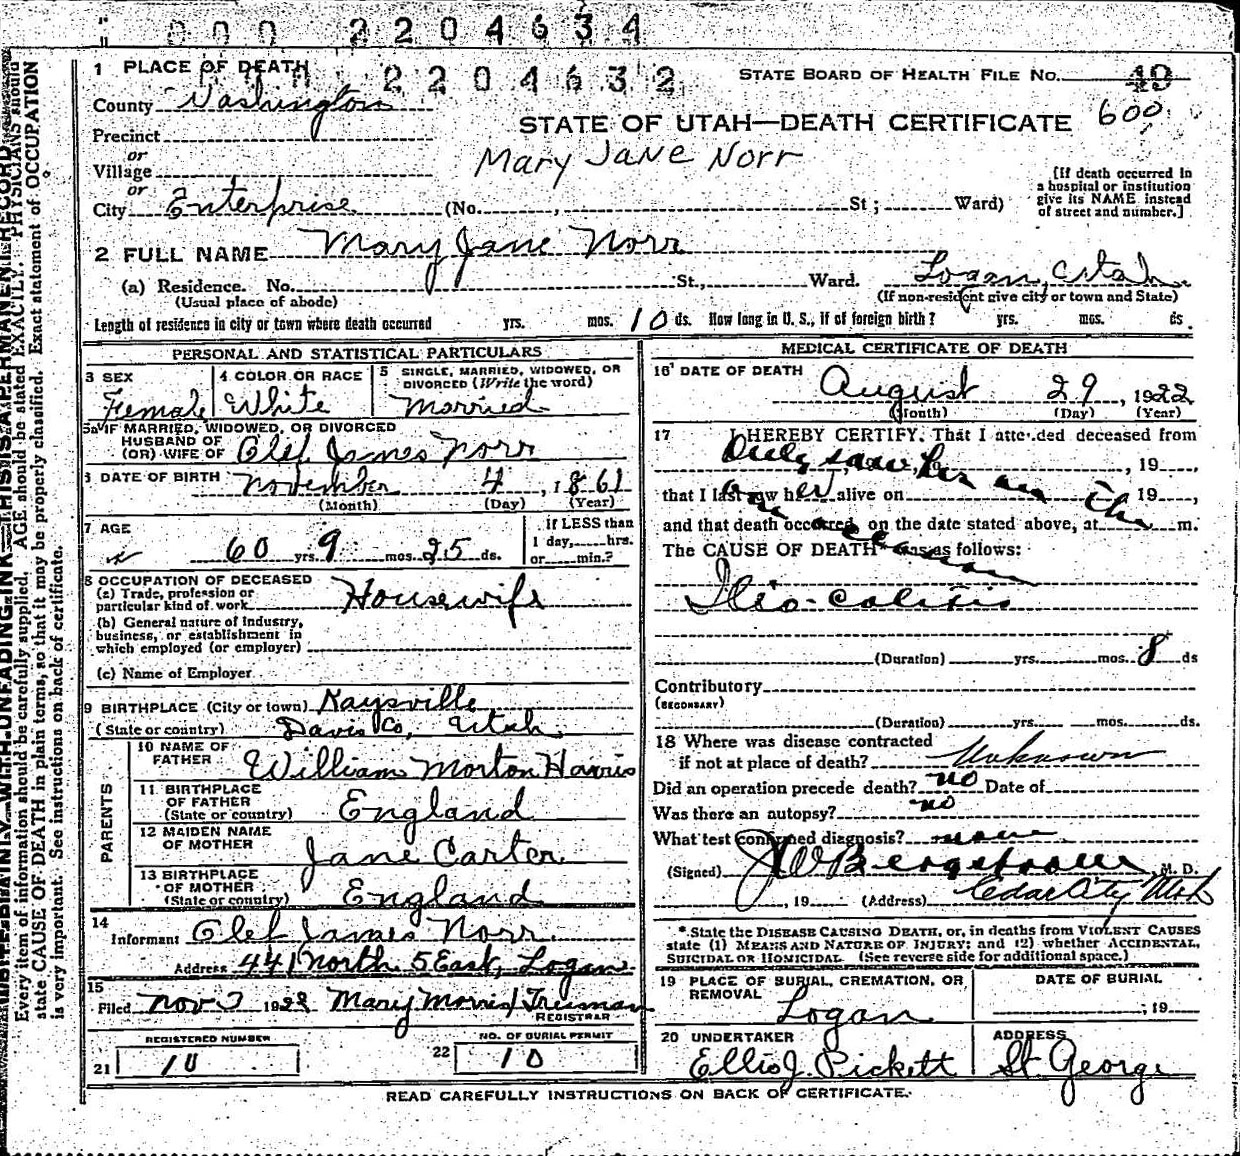 000 2204634
2204632
1 PLACE OF DEATH
STATE BOARD OF HEALTH FILE No. 49
County Washington
600
STATE OF UTAH—DEATH CERTIFICATE
Precinct
or
Mary Jane Norr
Village
or
City Enterprise (No. , St ; Ward)
[If death occurred in
a hospital or institution
give its NAME instead
of street and number.]
2 FULL NAME Mary Jane Norr
(a) Residence. No. St., Ward. Logan, Utah.
(Usual place of abode) (If non-resident give city or town and State)
Length of residence in city or town where death occurred yrs. mos. 10 ds. How long in U. S., if of foreign birth? yrs. mos. ds.
PERSONAL AND STATISTICAL PARTICULARS
3 SEX
Female
4 COLOR OR RACE
White
5 SINGLE, MARRIED, WIDOWED, OR
DIVORCED (Write the word)
Married
5a IF MARRIED, WIDOWED, OR DIVORCED
HUSBAND OF
(OR) WIFE OF Olef James Norr
6 DATE OF BIRTH November 4, 1861
(Month) (Day) (Year)
7 AGE
60 yrs. 9 mos. 25 ds.
if LESS than
1 day, hrs.
or min.?
8 OCCUPATION OF DECEASED
(a) Trade, profession or
particular kind of work Housewife
(b) General nature of industry,
business, or establishment in
which employed (or employer)
(c) Name of Employer
9 BIRTHPLACE (City or town) Kaysville
(State or country) Davis Co, Utah
PARENTS
10 NAME OF
FATHER William Morton Harris
11 BIRTHPLACE
OF FATHER
(State or country) England
12 MAIDEN NAME
OF MOTHER Jane Carter
13 BIRTHPLACE
OF MOTHER
(State or country) England
14
Informant Olef James Norr
Address 441 North 5 East, Logan
15
Filed Nov 7 1922 Mary Morris Truman
REGISTRAR
REGISTERED NUMBER
21 10
NO. OF BURIAL PERMIT
22 10
MEDICAL CERTIFICATE OF DEATH
16 DATE OF DEATH
August 29, 1922
(Month) (Day) (Year)
17 I HEREBY CERTIFY. That I attended deceased from
Only saw her , 19 ,
that I last saw her alive on , 19 ,
and that death occurred, on the date stated above, at m.
The CAUSE OF DEATH* was as follows:
Ilio-colitis
(Duration) yrs. mos. 8 ds
Contributory
(SECONDARY)
(Duration) yrs. mos. ds.
18 Where was disease contracted
if not at place of death? Unknown
Did an operation precede death? no Date of
Was there an autopsy? no
What test confirmed diagnosis? none
(Signed) J W Bergstrom M. D.
, 19 (Address) Cedar City Utah
* State the DISEASE CAUSING DEATH, or, in deaths from VIOLENT CAUSES
state (1) MEANS AND NATURE OF INJURY; and (2) whether ACCIDENTAL,
SUICIDAL OR HOMICIDAL (See reverse side for additional space.)
19 PLACE OF BURIAL, CREMATION, OR
REMOVAL
Logan
DATE OF BURIAL
; 19
20 UNDERTAKER
Ellis J Pickett
ADDRESS
St. George
READ CAREFULLY INSTRUCTIONS ON BACK OF CERTIFICATE.
WITH UNFADING INK—THIS IS A PERMANENT RECORD
Every item of information should be carefully supplied. AGE should be stated EXACTLY. PHYSICIANS should
state CAUSE OF DEATH in plain terms, so that it may be properly classified. Exact statement of OCCUPATION
is very important. See instructions on back of certificate.